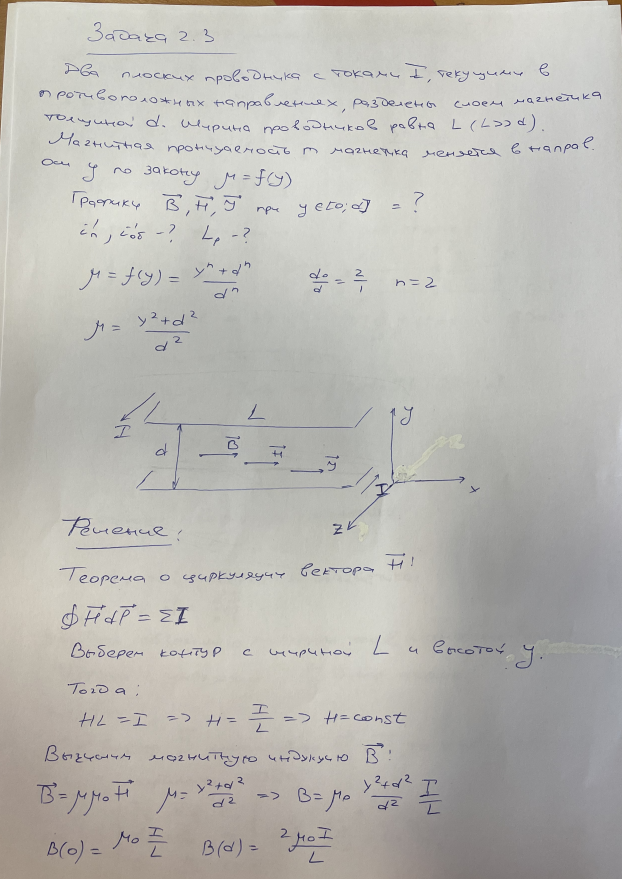 Задача 2.3
Два плоских проводника с токами I, текущими в
противоположных направлениях, разделены слоем магнетика
толщиной d. Ширина проводников равна L (L>>d).
Магнитная проницуаемость m магнетика меняется в направ.
оси y по закону μ=f(y)
Графики B⃗, H⃗, J⃗ при y∈[0;d] = ?
i'п, i'об -? Lр -?
μ = f(y) = (yⁿ+dⁿ)/dⁿ d₀/d = 2/1 n=2
μ = (y²+d²)/d²
L
y
I
d
B⃗
H⃗
J⃗
I
x
z
Решение:
Теорема о циркуляции вектора H⃗:
∮H⃗dP⃗ = ΣI
Выберем контур с шириной L и высотой y.
Тогда:
HL = I => H = I/L => H=const
Вычислим магнитную индукцию B⃗:
B⃗=μμ₀H⃗ μ=(y²+d²)/d² => B=μ₀ (y²+d²)/d² I/L
B(0) = μ₀ I/L B(d) = 2μ₀I/L